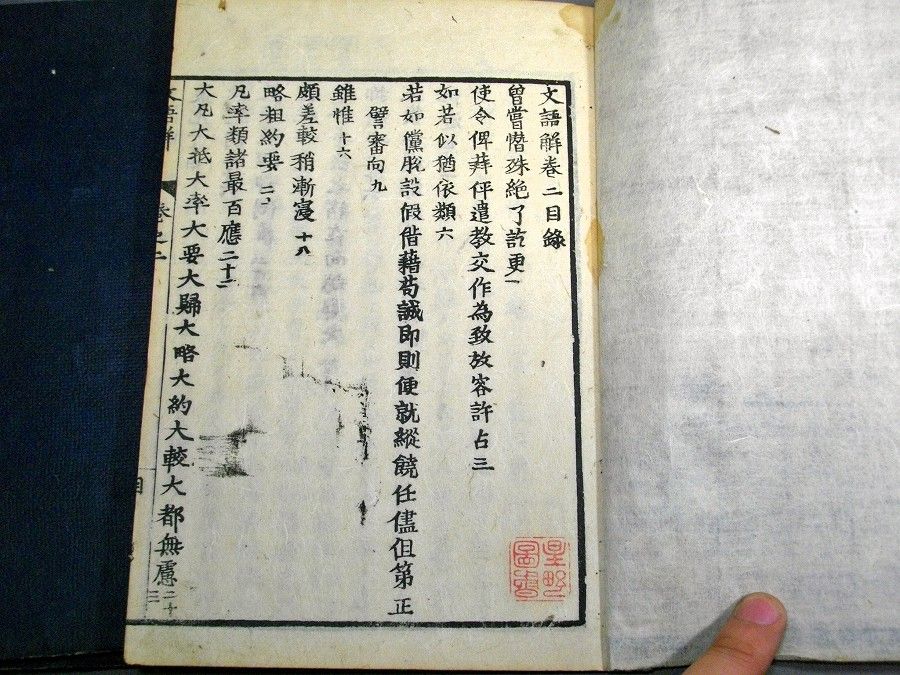 文語解卷二目錄
曾嘗憯殊絕了訖更一
使令俾拜伻遣教交作為致放容許占三
如若似猶依類六
若如儻脫設假借藉苟誠即則便就縱饒任儘但第正
譬審向九
雖惟十六
頗差較稍漸寖十八
略粗約要二八
凡率類諸最百應二十一
大凡大抵大率大要大歸大略大約大較大都無慮二十三
文語解 卷之二 目
星野圖書